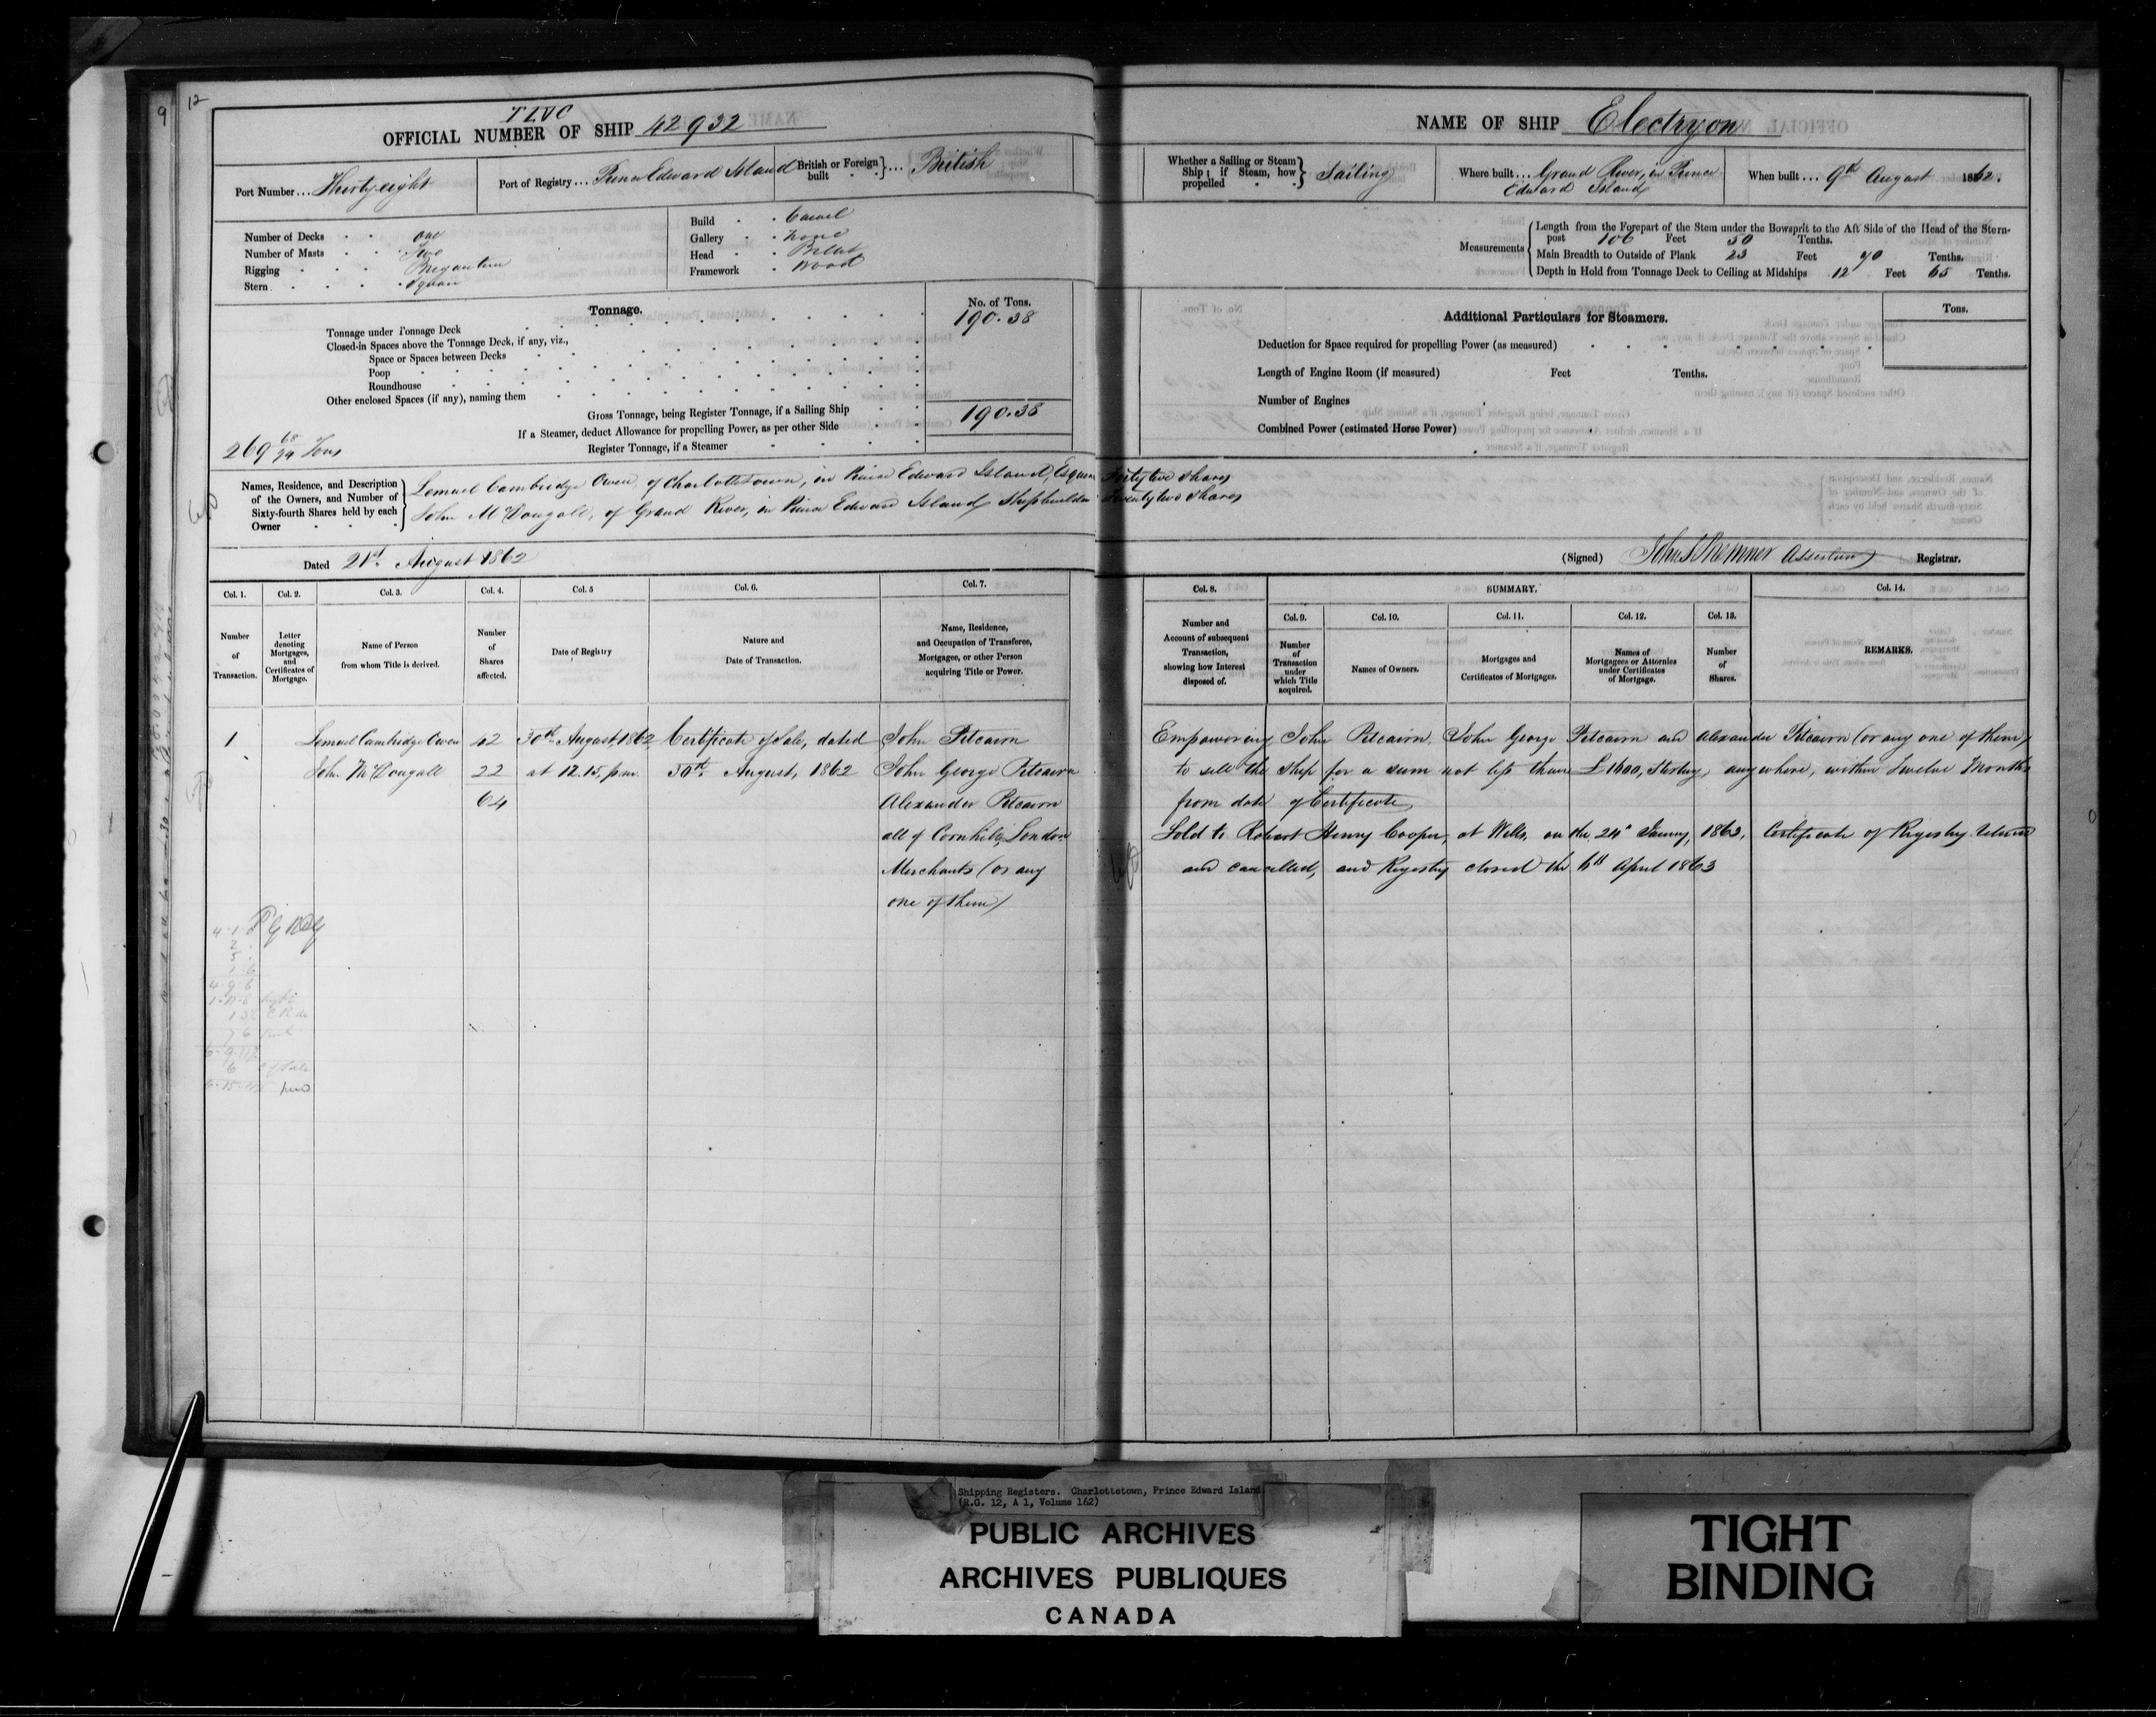 9
12
TLVC
OFFICIAL NUMBER OF SHIP 42932
Port Number ... Thirty eight
Port of Registry ... Prince Edward Island
British or Foreign built } ... British
Number of Decks one
Number of Masts Two
Rigging Brigantine
Stern Square
Build Carvel
Gallery none
Head Billet
Framework wood
Tonnage.
No. of Tons.
Tonnage under Tonnage Deck 190.38
Closed-in Spaces above the Tonnage Deck, if any, viz.,
Space or Spaces between Decks
Poop
Roundhouse
Other enclosed Spaces (if any), naming them
Gross Tonnage, being Register Tonnage, if a Sailing Ship 190.38
If a Steamer, deduct Allowance for propelling Power, as per other Side
Register Tonnage, if a Steamer
269 68/94 Tons
Names, Residence, and Description of the Owners, and Number of Sixty-fourth Shares held by each Owner
Lemuel Cambridge Owen, of Charlottetown, in Prince Edward Island, Esquire Forty two shares
John McDougall, of Grand River, in Prince Edward Island, Shipbuilder Twenty two shares
Dated 21st August 1862
NAME OF SHIP Electryon
Whether a Sailing or Steam Ship; if Steam, how propelled } Sailing
Where built ... Grand River, in Prince Edward Island
When built ... 9th August 1862.
Measurements
Length from the Forepart of the Stem under the Bowsprit to the Aft Side of the Head of the Stern-
post 106 Feet 50 Tenths.
Main Breadth to Outside of Plank 23 Feet 70 Tenths.
Depth in Hold from Tonnage Deck to Ceiling at Midships 12 Feet 65 Tenths.
Additional Particulars for Steamers.
Tons.
Deduction for Space required for propelling Power (as measured)
Length of Engine Room (if measured) Feet Tenths.
Number of Engines
Combined Power (estimated Horse Power)
(Signed) Registrar.
Col. 1. Number of Transaction.
Col. 2. Letter denoting Mortgages, and Certificates of Mortgage.
Col. 3. Name of Person from whom Title is derived.
Col. 4. Number of Shares affected.
Col. 5 Date of Registry
Col. 6. Nature and Date of Transaction.
Col. 7. Name, Residence, and Occupation of Transferee, Mortgagee, or other Person acquiring Title or Power.
Col. 8. Number and Account of subsequent Transaction, showing how Interest disposed of.
SUMMARY.
Col. 9. Number of Transaction under which Title acquired.
Col. 10. Names of Owners.
Col. 11. Mortgages and Certificates of Mortgages.
Col. 12. Names of Mortgagees or Attornies under Certificates of Mortgage.
Col. 13. Number of Shares.
Col. 14. REMARKS.
1 Lemuel Cambridge Owen 42 30th August, 1862 Certificate of Sale, dated John Pitcairn
John McDougall 22 at 12.15, p.m. 30th August, 1862 John George Pitcairn
64 Alexander Pitcairn
all of Cornhill, London
Merchants (or any
one of them)
Empowering John Pitcairn, John George Pitcairn and Alexander Pitcairn (or any one of them)
to sell the Ship for a sum not less than £1400, Sterling, any where, within Twelve Months
from date of Certificate,
Sold to Robert Henry Cooper, at Wells, on the 24th January, 1863, Certificate of Registry returned
and cancelled, and Registry closed the 6th April 1863
Shipping Registers. Charlottetown, Prince Edward Island
(R.G. 12, A 1, Volume 162)
PUBLIC ARCHIVES
ARCHIVES PUBLIQUES
CANADA
TIGHT
BINDING